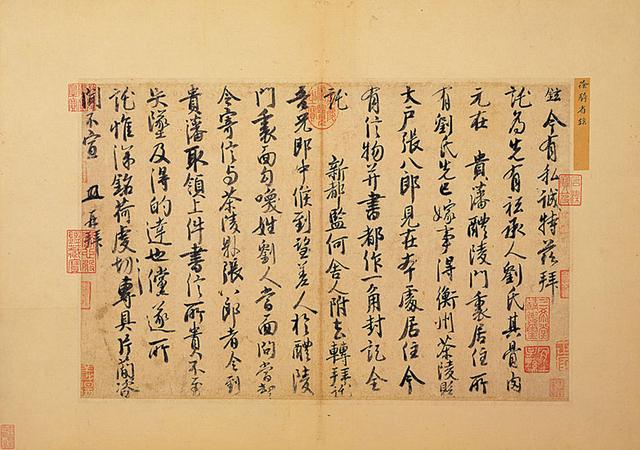 鉉今有私誠特茲拜
託為先有祗承人劉氏其骨肉
元在 貴藩醴陵門裏居住所
有劉氏先已嫁事得衡州茶陵縣
大戶張八郎見在本處居住今
有信物并書都作一角封記全
託 新都監何舍人附去轉拜託
吾兄郎中候到望差人於醴陵
門裏面勾喚姓劉人當面問當卻
令寄信与茶陵縣張八郎者令到
貴藩取領上件書信所貴不至
失墜及得的達也儻遂所
託惟深銘荷虔切專具片簡咨
聞不宣 再拜